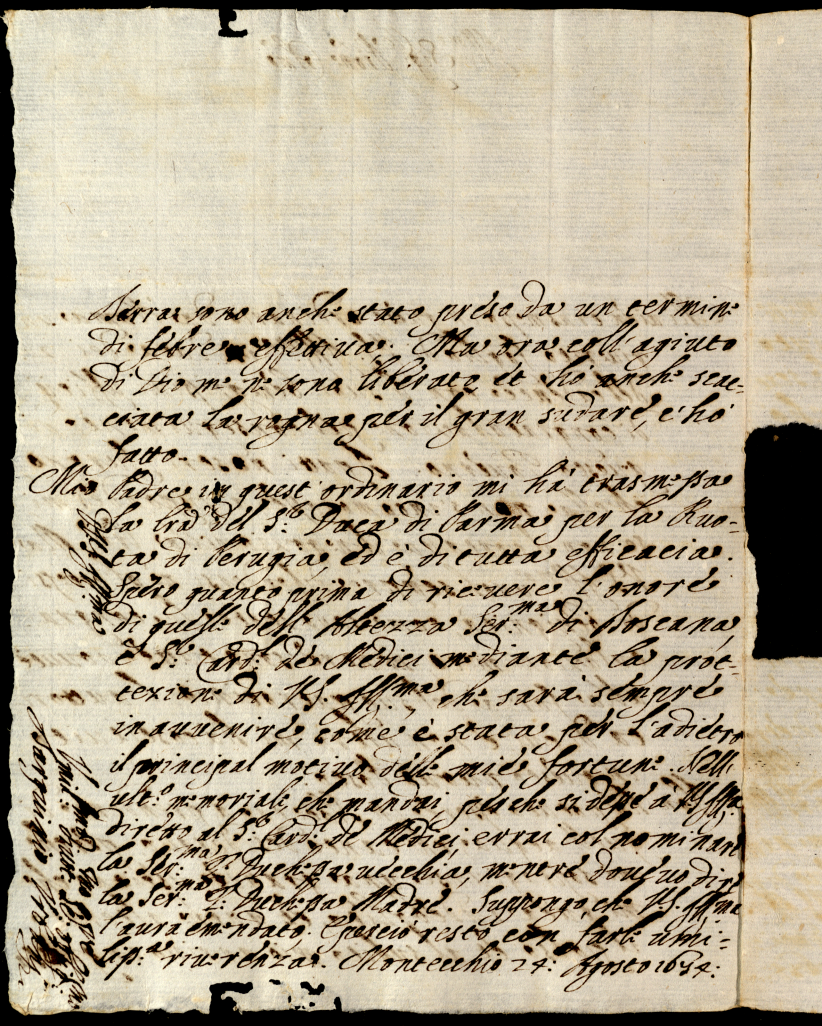 Terra sono anche stato preso da un termine
di febre effettiua. Ma ora coll'agiuto
di Dio me ne sono liberato et hò anche scac-
ciata la rogna per il gran sudare, c'hò
fatto.
Mio Padre in quest'ordinario mi hà trasmessa
la lra del S.r Duca di Parma per la Ruo-
ta di Perugia, ed è di tutta efficacia.
Spero quanto prima di riceuere l'onore
di quelle dell'Altezza Ser.ma di Toscana,
e S.r Card.l de Medici mediante la prot-
tezione di VS. Ill.ma che sarà sempre
in auuenire, come è stata per l'adietro
il principal motiuo delle mie fortune. Nell
ult.o memoriale che mandai, perche si desse a VS Ill.ma
diretto al S.r Card.l de Medici, errai col nominare
la Ser.ma Duchessa uecchia, mentre doueuo dire
la Ser.ma Duchessa Madre. Suppongo, che VS. Ill.ma
l'aurà emendato. E perciò resto con farle umi-
liss.a riuerenza. Montecchio 24: Agosto 1654: